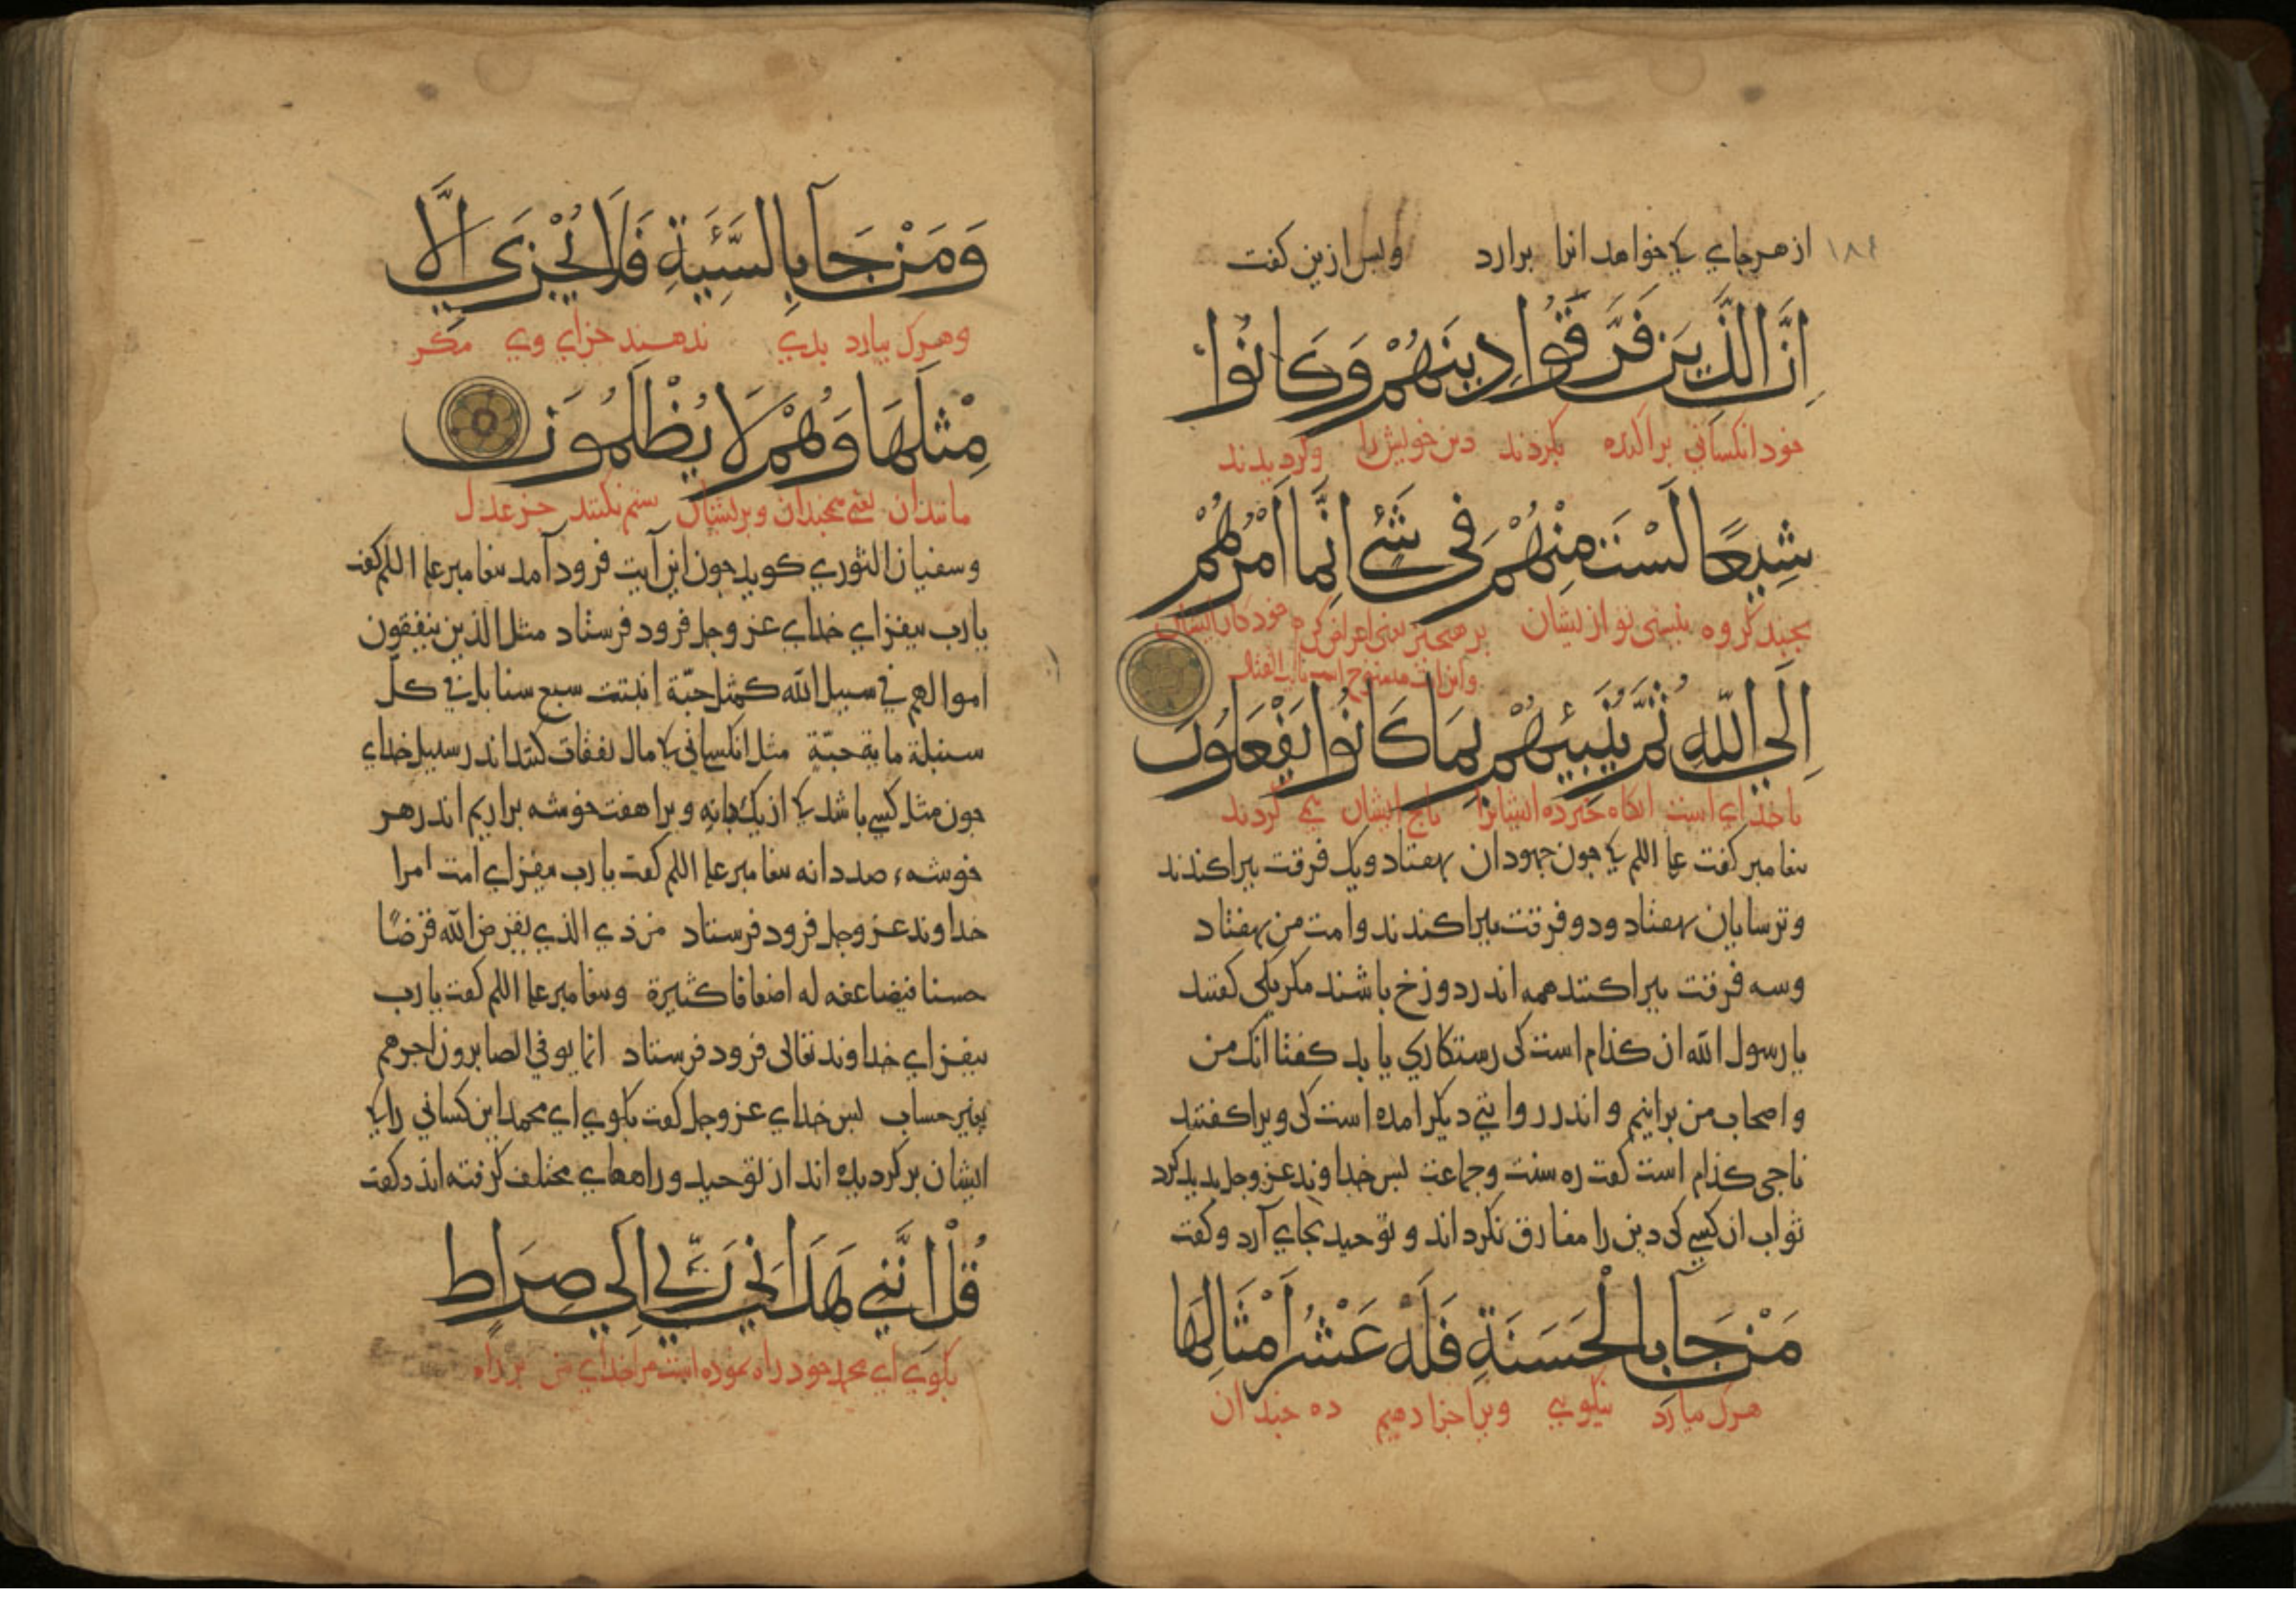 ١٨٤
از هر جای که خواهد انرا برارد وبس ازین کفت
اِنَّ الَّذِينَ فَرَّقُوا دِينَهُمْ وَكَانُوا
خود انکسانی براکنده بکردند دین خویش را وکردیدند
شِيَعًا لَسْتَ مِنْهُمْ فِي شَيْءٍ اِنَّمَا اَمْرُهُمْ
بجند کروه نیستی تو از یشان بر هیچیز یعنی اعراض کن خود کار ایشان
واین ایت منسوخ است بایت القتال
اِلَى اللّٰهِ ثُمَّ يُنَبِّيُهُمْ بِمَا كَانُوا يَفْعَلُونَ
با خدای است انکاه خبر ده ایشانرا بانج ایشان می کردند
بیغامبر کفت علیه السلم که جون جهودان بهفتاد ویک فرقت ببراکندند
وترسایان بهفتاد ودو فرقت ببراکندند وامت من بهفتاد
وسه فرقت ببراکنند همه اندر دوزخ باشند مکر یکی کفتند
یا رسول الله ان کذام است کی رستکاری یابد کفتا انک من
واصحاب من برانیم واندر روایتی دیکر امده است کی ویرا کفتند
ناجی کذام است کفت ره سنت وجماعت بس خداوند عز وجل بدید کرد
ثواب ان کسی کی دین را مفارق نکرداند وتوحید بجای آرد وکفت
مَنْ جَآ بِالْحَسَنَةِ فَلَهُ عَشْرُ اَمْثَالِهَا
هرک بیارد نیکویی ویرا جزا دهیم ده جندان
وَمَنْ جَآ بِالسَّيِّئَةِ فَلَا يُجْزَى اِلَّا
وهرک بیارد بدی ندهند جزای وی مکر
مِثْلَهَا وَهُمْ لَا يُظْلَمُونَ
مانند ان یعنی همجندان وبریشان ستم نکنند جز عدل
وسفیان الثوری کوید جون این آیت فرود آمد بیغامبر علیه السلم کفت
یا رب بیفزای خدای عز وجل فرود فرستاد مثل الذین ینفقون
اموالهم في سبیل الله کمثل حبّة انبتت سبع سنابل في کلّ
سنبلة مایة حبّة مثل انکسانی که مال نفقات کنند اندر سبیل خدای
جون مثل کسی باشد که از یک دانه ویرا هفت خوشه براریم اندر هر
خوشهٔ صد دانه بیغامبر علیه السلم کفت یا رب بیفزای امت مرا
خداوند عز وجل فرود فرستاد من ذي الذي یقرض الله قرضًا
حسنا فیضاعفه له اضعافا کثیرة وبیغامبر علیه السلم کفت یا رب
بیفزای خداوند تعالی فرود فرستاد انما یوفی الصابرون اجرهم
بغیر حساب بس خدای عز وجل کفت بکوی ای محمد این کسانی را که
ایشان برکردیده اند از توحید وراههای مختلف کرفته اند وکفت
قُلْ اِنَّنِي هَدَانِي رَبِّي اِلَى صِرَاطٍ
بکوی ای محمد خود راه نموده است مرا خدای من بر راه